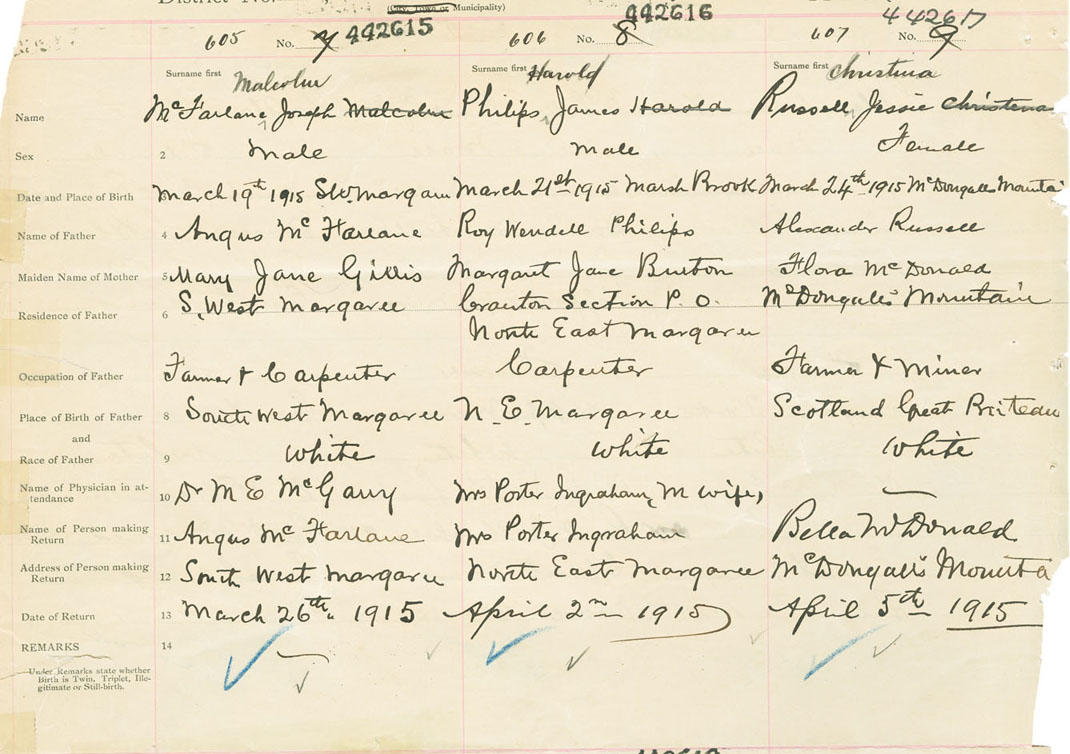 (City, Town or Municipality)
442615 442616 442617
605 No. 7 606 No. 8 607 No. 9
Surname first Malcolm Surname first Harold Surname first Christina
Name McFarlane, Joseph Malcolm Philips, James Harold Russell, Jessie Christena
Sex 2 Male Male Female
Date and Place of Birth March 19th 1915 S.W. Margaree March 21st 1915 Marsh Brook March 24th 1915 McDougalls Mountai
Name of Father 4 Angus McFarlane Roy Wendell Philips Alexander Russell
Maiden Name of Mother 5 Mary Jane Gillis Margaret Jane Burton Flora McDonald
Residence of Father 6 S. West Margaree Cranton Section P. O. McDougall's Mountain
North East Margaree
Occupation of Father Farmer & Carpenter Carpenter Farmer & Miner
Place of Birth of Father 8 South West Margaree N. E. Margaree Scotland Great Briteau
and
Race of Father 9 White White White
Name of Physician in at-
tendance 10 Dr M E McGarry Mrs Porter Ingraham, M wife,
Name of Person making
Return 11 Angus McFarlane Mrs Porter Ingraham Bella McDonald
Address of Person making
Return 12 South West Margaree North East Margaree McDougall's Mounta
Date of Return 13 March 26th 1915 April 2nd 1915 April 5th 1915
REMARKS 14
Under Remarks state whether
Birth is Twin, Triplet, Ille-
gitimate or Still-birth.